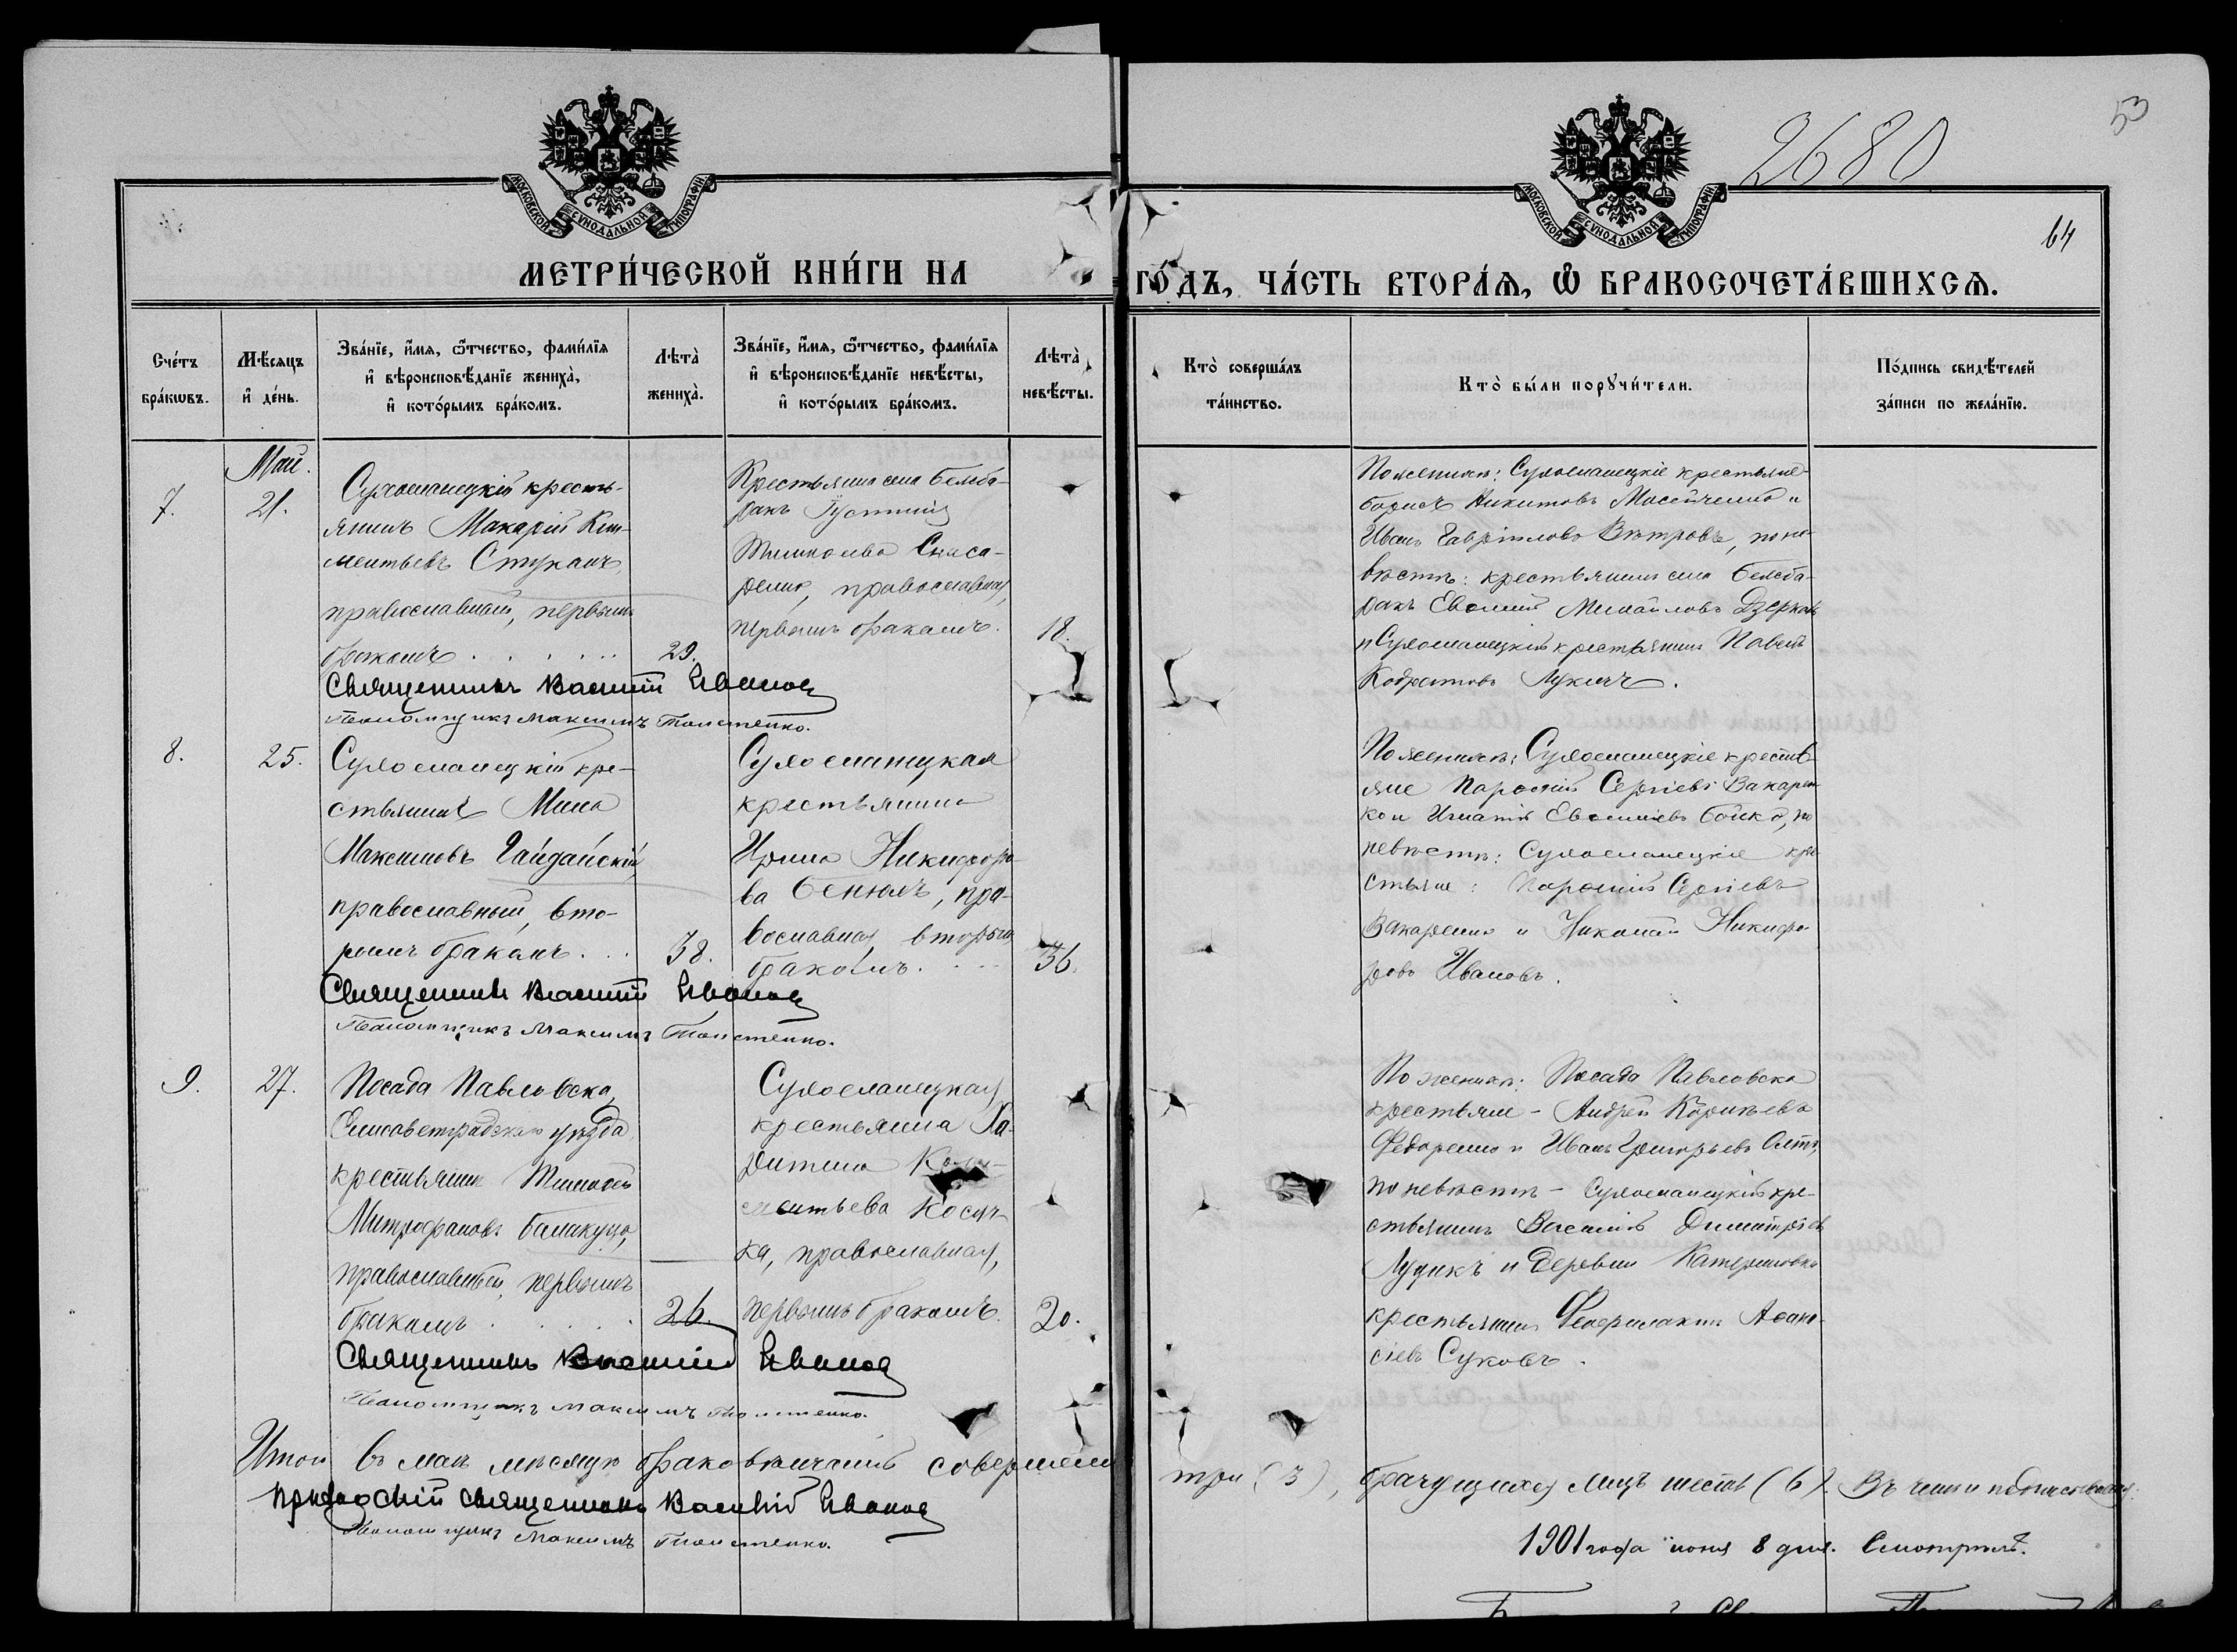 2680
53
64
МОСКОВСКОЙ СѴНОДАЛЬНОЙ ТИПОГРАФІИ
МОСКОВСКОЙ СѴНОДАЛЬНОЙ ТИПОГРАФІИ
МЕТРИ́ЧЕСКОЙ КНИ́ГИ НА ГО́ДЪ, ЧА́СТЬ ВТОРА́Ѧ, Ѽ БРАКОСОЧЕТА́ВШИХСѦ.
Сче́тъ бра́кѡвъ.
Мѣ́сяцъ и҆ де́нь.
Зва́нїе, и҆́мѧ, ѻ҆́тчество, фами́лїѧ и҆ вѣроисповѣ́данїе жениха̀, и҆ кото́рымъ бра́комъ.
Лѣта̀ жениха̀.
Зва́нїе, и҆́мѧ, ѻ҆́тчество, фами́лїѧ и҆ вѣроисповѣ́данїе невѣ́сты, и҆ кото́рымъ бра́комъ.
Лѣта̀ невѣ́сты.
Кто̀ соверша́лъ та́инство.
Кто̀ бы́ли порꙋчи́тели.
По́дпись свидѣ́телей за́писи по жела́нїю.
Май.
7.
21.
Сухоеланецкій кресть-
янинъ Макарій
Стукачъ,
православный, первымъ
бракомъ . . . . . .
29.
Крестьянина села Бельба-
ракъ
православная,
первымъ бракомъ.
18.
По женихѣ: Сухоеланецкіе крестьяне-
Борисъ Никитовъ и
Иванъ Гавріиловъ Вѣтровъ, по не-
вѣстѣ: крестьянинъ села Бельба-
ракъ Евфимій Михайловъ
и Сухоеланецкій крестьянинъ Павелъ
Кодратовъ
Священникъ Василій Иванов
Псаломщикъ Максимъ Толстенко.
8.
25.
Сухоеланецкій кре-
стьянинъ Мина
Максимовъ Гайдайскій,
православный, вто-
рымъ бракомъ . . .
38.
Сухоеланецкая
крестьянина
Ирина Никифоро-
ва Бенюхъ, пра-
вославная, вторымъ
бракомъ . . .
36.
По женихѣ: Сухоеланецкіе кресть-
яне Сергіевъ Вакарен-
ко и Игнатій Евфиміевъ Бойко, по
невѣстѣ: Сухоеланецкіе кре-
стьяне: Сергіевъ
Вакаренко и Николай Никифо-
ровъ Ивановъ.
Священникъ Василій Иванов
Псаломщикъ Максимъ Толстенко.
9.
27.
Посада Павловска,
Елисаветградскаго уѣзда
крестьянинъ Тимофей
Митрофановъ
православный, первымъ
бракомъ . . . . .
26.
Сухоеланецкая
крестьянина Ха-
ритина
ментьева
ка, православная,
первымъ бракомъ.
20.
По женихѣ: Посада Павловска
крестьяне - Андрей Корнѣевъ
Федоренко и Иванъ Григорьевъ
по невѣстѣ - Сухоеланецкій кре-
стьянинъ Василій Димитріевъ
и деревни Катериновки
крестьянинъ Аѳана-
сіевъ Суковъ.
Священникъ Василій Иванов
Псаломщикъ Максимъ Толстенко.
Итого въ маѣ мѣсяцѣ браковѣнчаній совершено три (3), брачущихся лицъ шесть (6). Въ чемъ и подписываемся:
Приходскій священникъ Василій Иванов
Псаломщикъ Максимъ Толстенко.
1901 года іюня 8 дня. Смотрѣлъ.